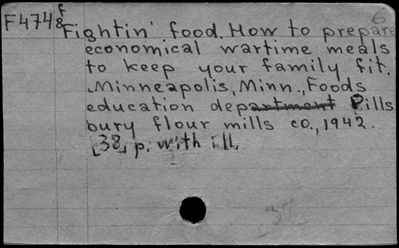 F4748f
6
Fightin' food. How to prepare
economical wartime meals
to keep your family fit.
Minneapolis, Minn., Foods
education department Pills
bury flour mills co., 1942.
[38] p. with ill.